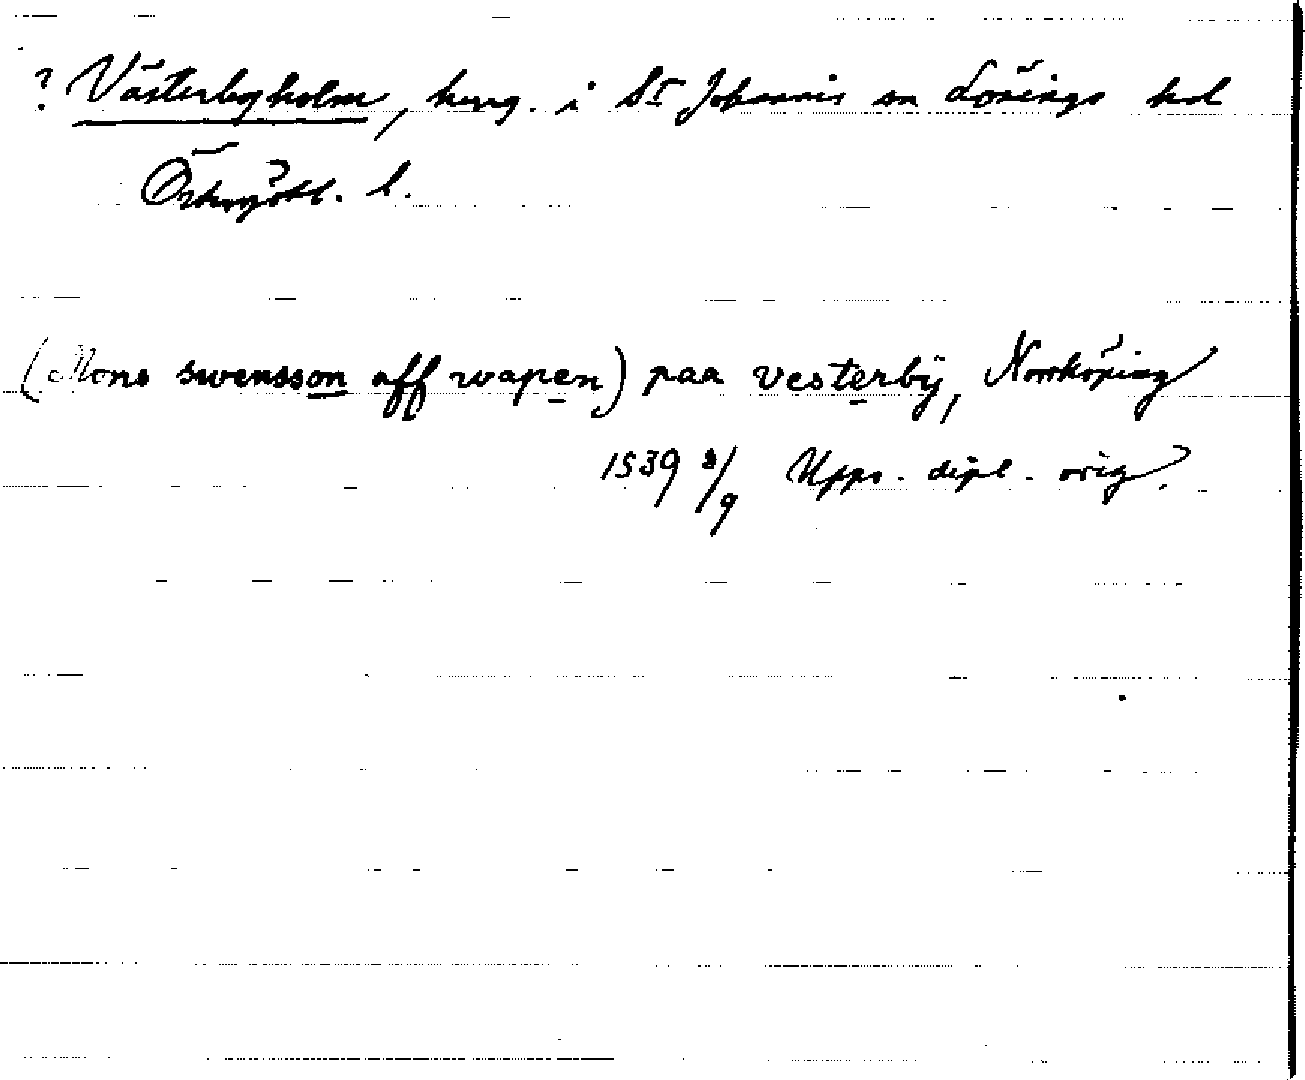 ? Västerbyholm, herrg. i St Johannis sn Lösings hd
Östergötl. l.
(Mons swensson aff wapen) paa vesterbÿ, Norrköping
1539 3/9 Upps. dipl. orig?